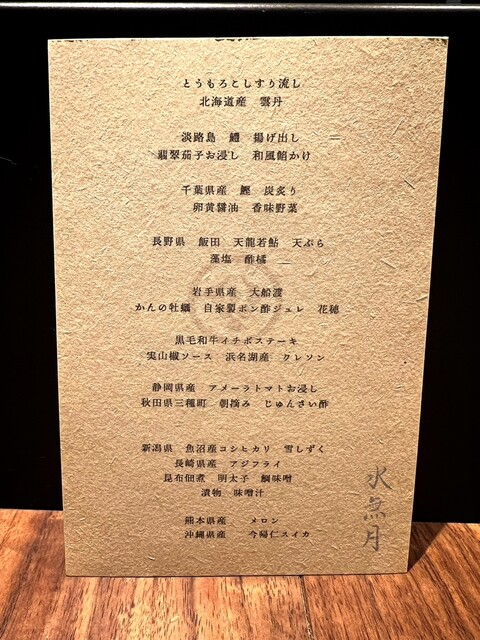 とうもろこしすり流し
北海道産 雲丹
淡路島 鱧 揚げ出し
翡翠茄子お浸し 和風餡かけ
千葉県産 鰹 炭炙り
卵黄醤油 香味野菜
長野県 飯田 天龍若鮎 天ぷら
藻塩 酢橘
岩手県産 大船渡
かんの牡蠣 自家製ポン酢ジュレ 花穂
黒毛和牛イチボステーキ
実山椒ソース 浜名湖産 クレソン
静岡県産 アメーラトマトお浸し
秋田県三種町 朝摘み じゅんさい酢
新潟県 魚沼産コシヒカリ 雪しずく
長崎県産 アジフライ
昆布佃煮 明太子 鯛味噌
漬物 味噌汁
熊本県産 メロン
沖縄県産 今帰仁スイカ
水無月